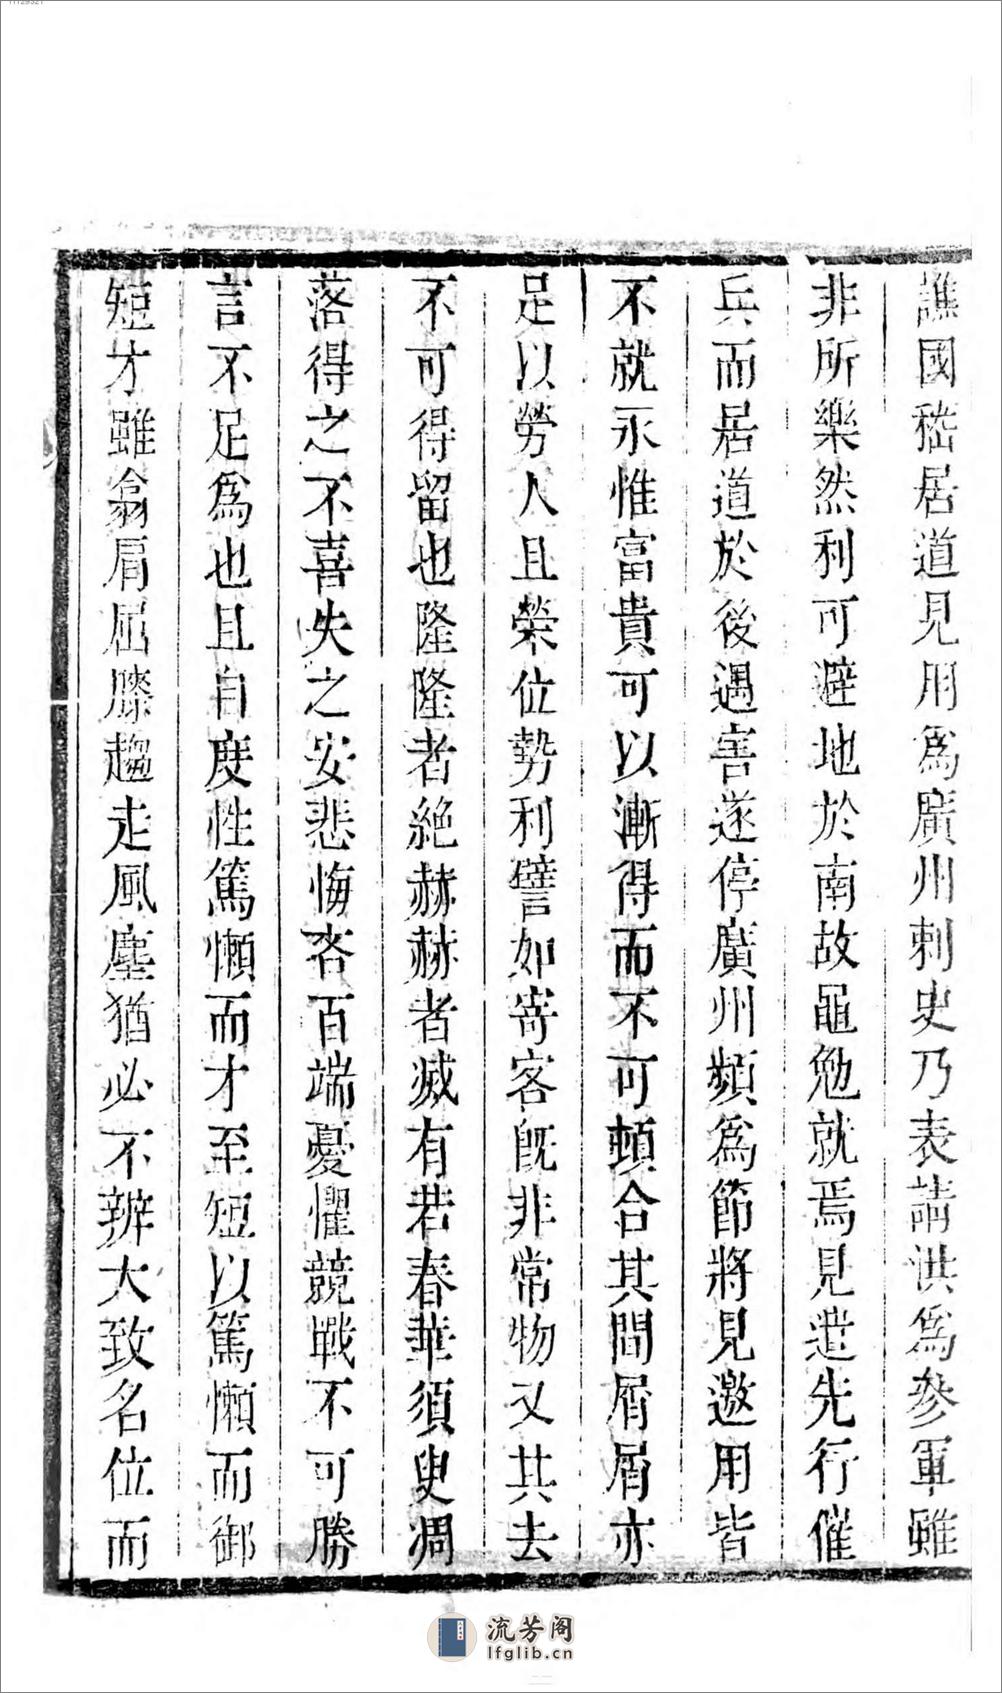 11129321
譙國嵇居道見用爲廣州刺史乃表請洪爲參軍雖
非所樂然利可避地於南故黽勉就焉見遣先行催
兵而居道於後遇害遂停廣州頻爲節將見邀用皆
不就永惟富貴可以漸得而不可頓合其間屑屑亦
足以勞人且榮位勢利譬如寄客旣非常物又其去
不可得留也隆隆者絶赫赫者滅有若春華須臾凋
落得之不喜失之安悲悔吝百端憂懼競戰不可勝
言不足爲也且自度性篤懶而才至短以篤懶而御
短才雖翕肩屈膝趨走風塵猶必不辦大致名位而
流芳阁
lfglib.cn